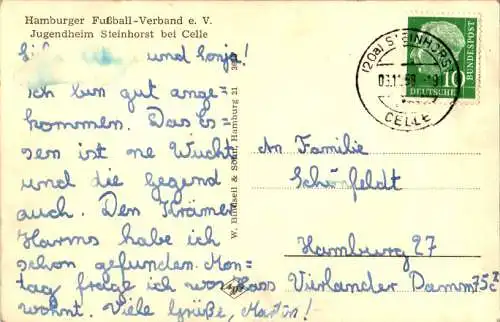 Hamburger Fußball-Verband e. V.
Jugendheim Steinhorst bei Celle
und Sonja!
Ich bin gut ange-
kommen. Das Es-
sen ist ne Wucht
und die gegend
auch. Den Krämer
Harms habe ich
schon gefunden. Mon-
tag frage ich wo
wohnt. Viele Grüße, Martin!
W. Bindseil & Sohn, Hamburg 21
(20a) STEINHORST
CELLE
10
DEUTSCHE
BUNDESPOST
An Familie
Schönfeldt
Hamburg 27
Vierlander Damm 75c